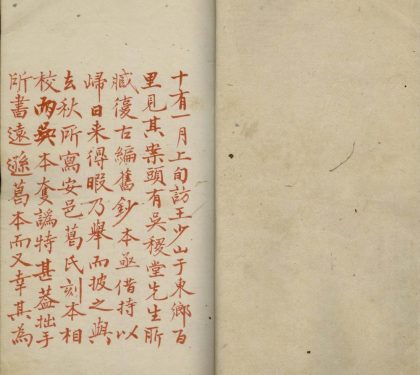 十有一月上旬訪王少山于東鄉百
里見其案頭有吳稷堂先生所
臧復古編舊鈔本亟借持以
歸日来得暇乃舉而披之與
去秋所寫安邑葛氏刻本相
校而吳本夐譌特甚蓋拙手
所書遠遜葛本而又幸其為